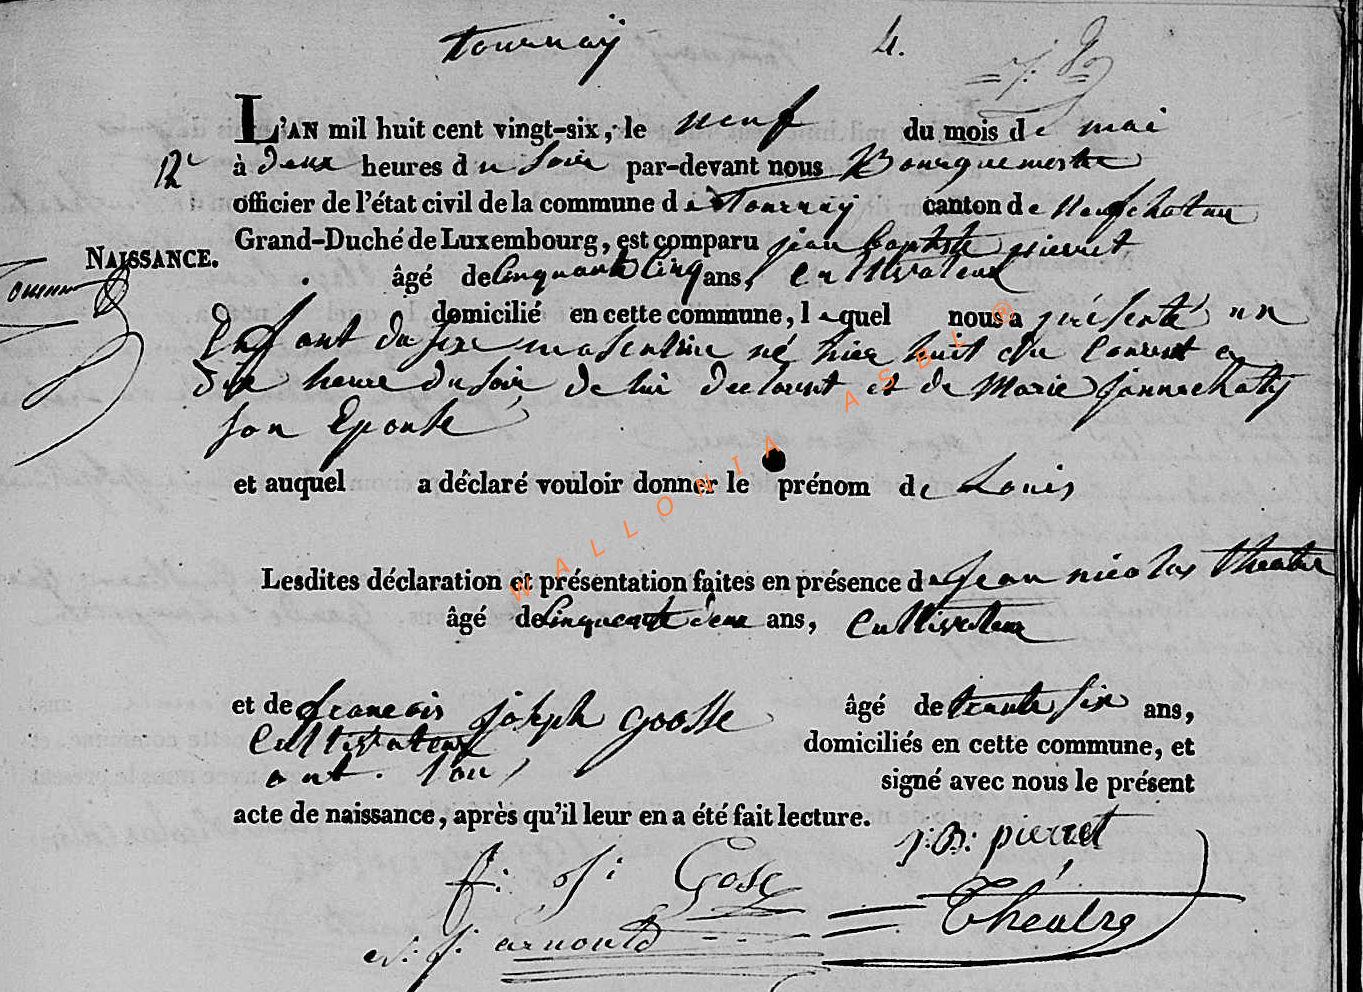 tournaÿ 4.
L'AN mil huit cent vingt-six, le neuf du mois de mai
à deux heures du soir par-devant nous Bourguemestre
officier de l'état civil de la commune de Tournay canton de Neufchateau
Grand-Duché de Luxembourg, est comparu jean baptiste pierret
NAISSANCE.
âgé de Cinquante Cinq ans, Cultivateur
domicilié en cette commune, lequel nous a présenté un
Enfant du sexe masculin né hier huit du Courant a
dix heure du soir de lui declarant et de Marie
son Epouse
et auquel a déclaré vouloir donner le prénom de Louis
WALLONIA ASBL ®
Lesdites déclaration et présentation faites en présence de Jean nicolas théatre
âgé de Cinquante deux ans, Cultivateur
et de francois joseph goosse âgé de trente six ans,
Cultivateur domiciliés en cette commune, et
ont tous signé avec nous le présent
acte de naissance, après qu'il leur en a été fait lecture.
J: B: pierret
f: J: Gose
Théatre
J: arnould